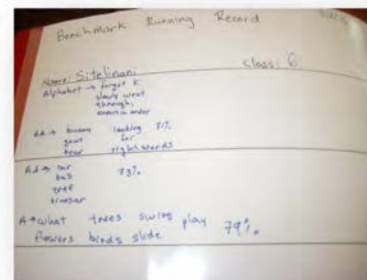 Benchmark Running Record
Name: Sitelinani Class: 6
Alphabet → forgot K
slowly went
through,
knows in order
looking 81%
for
bear sight words
Ad → car 83%
bus
tree
dinosaur
A → what trees swing play 79%
flowers birds slide